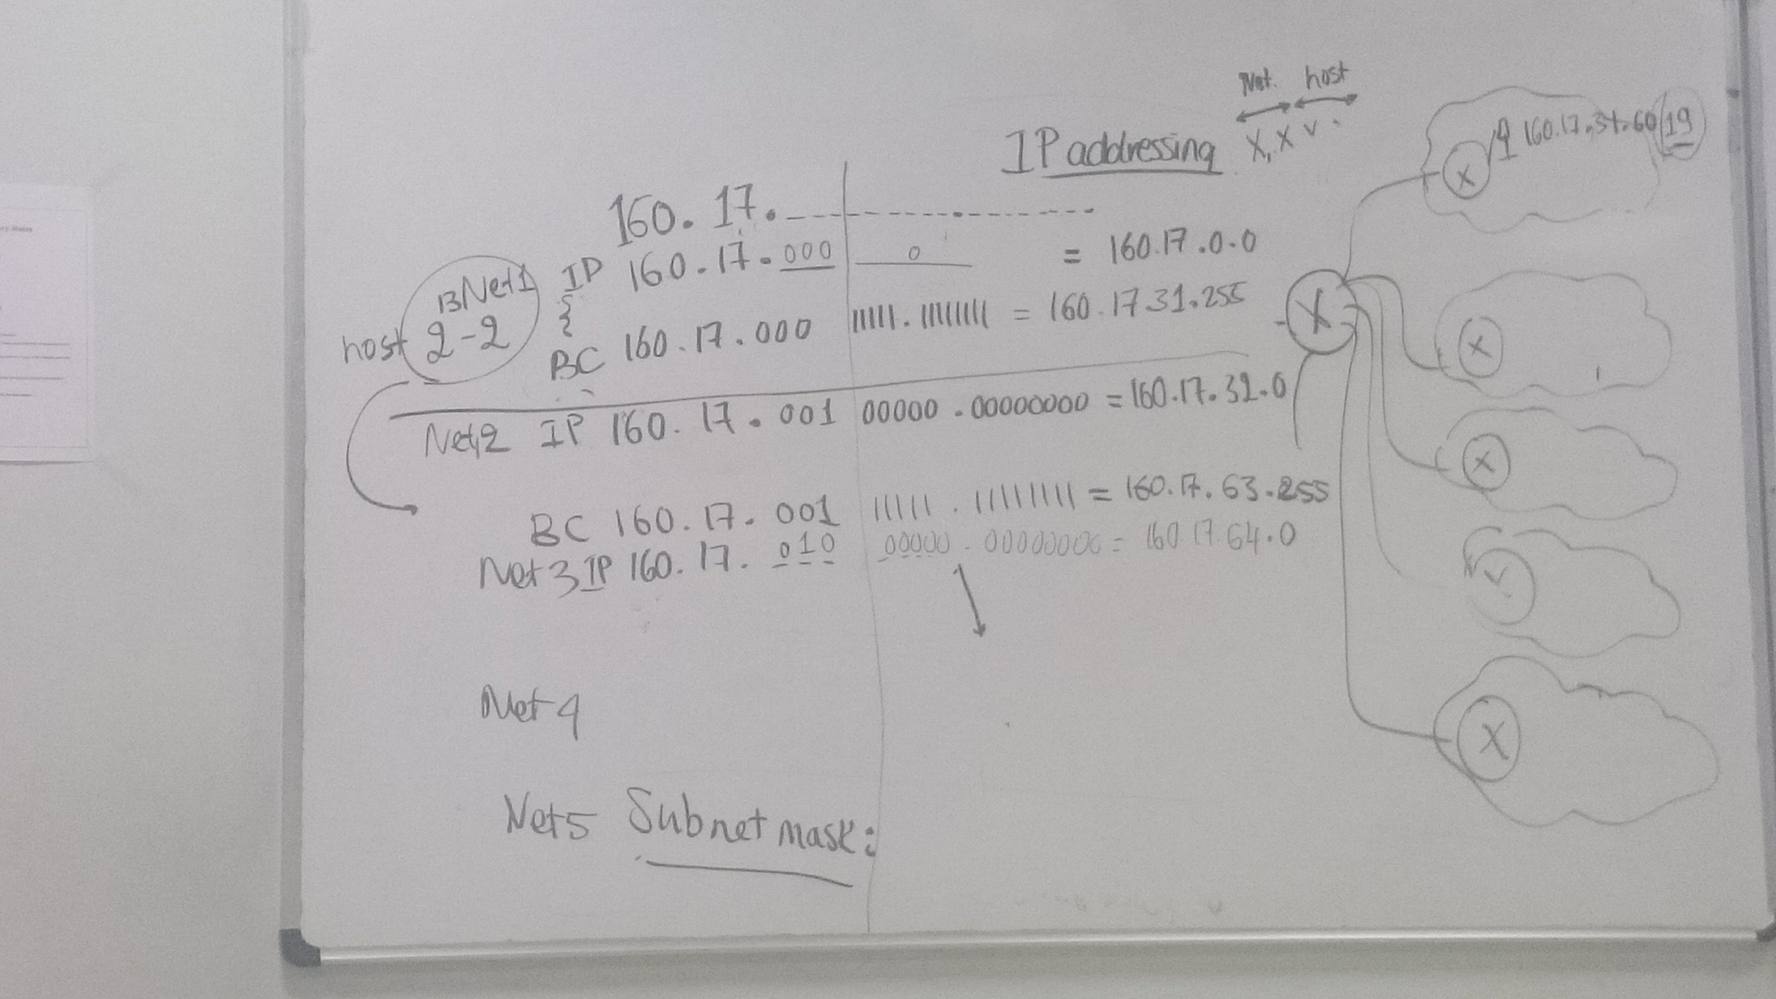 Net. host
IP addressing X.X
160.17.31.60/19
160.17.
IP 160.17.000 0 = 160.17.0.0
Net1
13
host 2-2
BC 160.17.000 11111.11111111 = 160.17 31.255
Net2 IP 160.17.001 00000.00000000 = 160.17.32.0
BC 160.17.001 11111.11111111 = 160.17.63.255
Net3 IP 160.17.010 00000.00000000 = 160 17.64.0
Net4
Net5 Subnet mask:
X
X
X
X
X